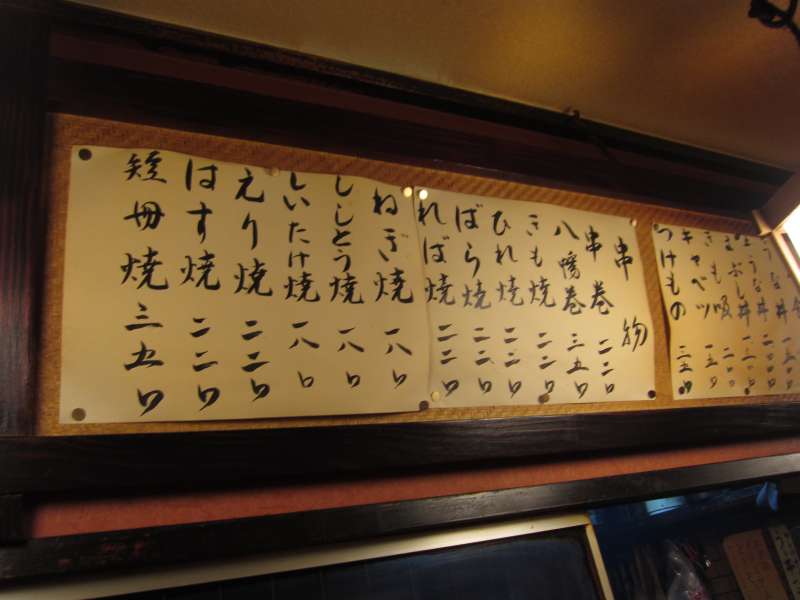 うな丼
上うな丼
まぶし丼
きも吸 二〇〇
キャベツ 一五〇
つけもの 三五〇
串物
串巻 二二〇
八幡巻 三五〇
きも焼 二二〇
ひれ焼 二二〇
ばら焼 二二〇
れば焼 二二〇
ねぎ焼 一八〇
ししとう焼 一八〇
しいたけ焼 一八〇
えり焼 二二〇
はす焼 二二〇
短冊焼 三五〇